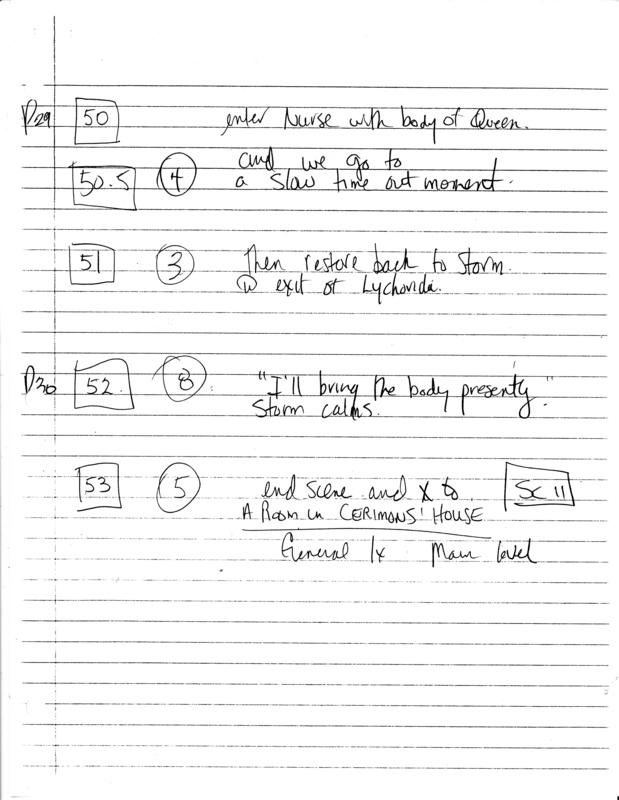 P29 50 enter Nurse with body of Queen.
and we go to
50.5 4 a slow time out moment.
51 3 Then restore back to Storm.
@ exit of Lychorida.
P30 52. 8 "I'll bring the body presently."
Storm calms.
53 5 end scene and X to Sc 11
A ROOM IN CERIMONS' HOUSE
General lx Main level